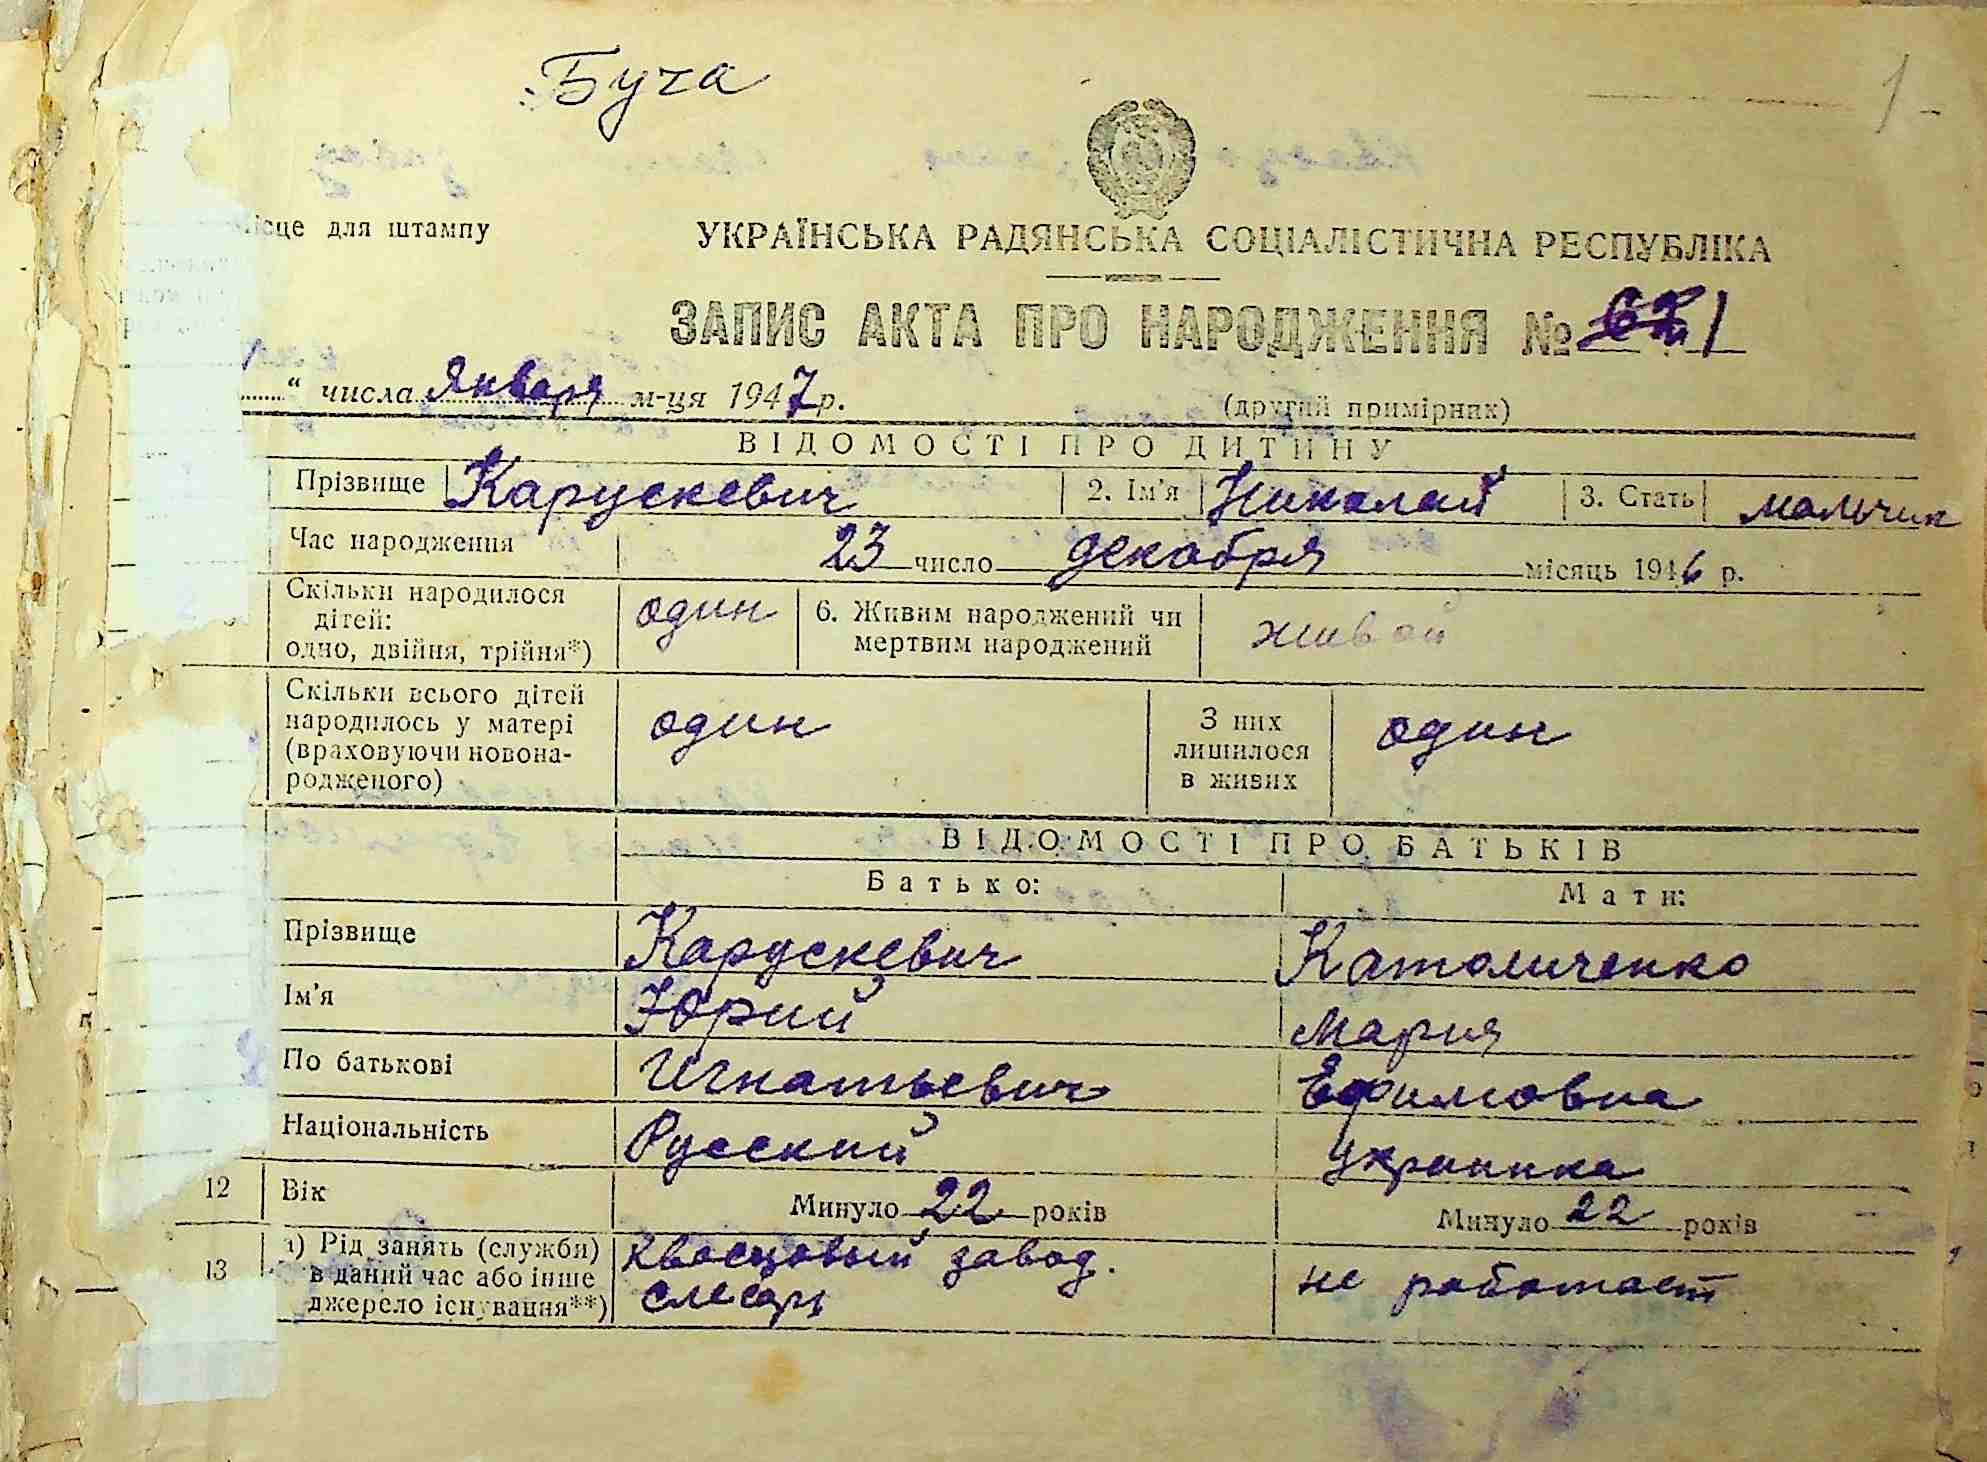 Буча
1
ісце для штампу
УКРАЇНСЬКА РАДЯНСЬКА СОЦІАЛІСТИЧНА РЕСПУБЛІКА
ЗАПИС АКТА ПРО НАРОДЖЕННЯ № 1
“ числа Января м-ця 1947 р.
(другий примірник)
ВІДОМОСТІ ПРО ДИТИНУ
Прізвище Карускевич 2. Ім’я Николай 3. Стать мальчик
Час народження 23 число декабря місяць 1946 р.
Скільки народилося
дітей:
одно, двійня, трійня*)
один
6. Живим народжений чи
мертвим народжений
живой
Скільки всього дітей
народилось у матері
(враховуючи новона-
родженого)
один
З них
лишилося
в живих
один
ВІДОМОСТІ ПРО БАТЬКІВ
Батько: Мати:
Прізвище Карускевич Католиченко
Ім’я Юрий Мария
По батькові Игнатьевич Ефимовна
Національність Русский Украинка
12 Вік Минуло 22 років Минуло 22 років
13 а) Рід занять (служби)
в даний час або інше
джерело існування**)
завод.
слесарь
не работает